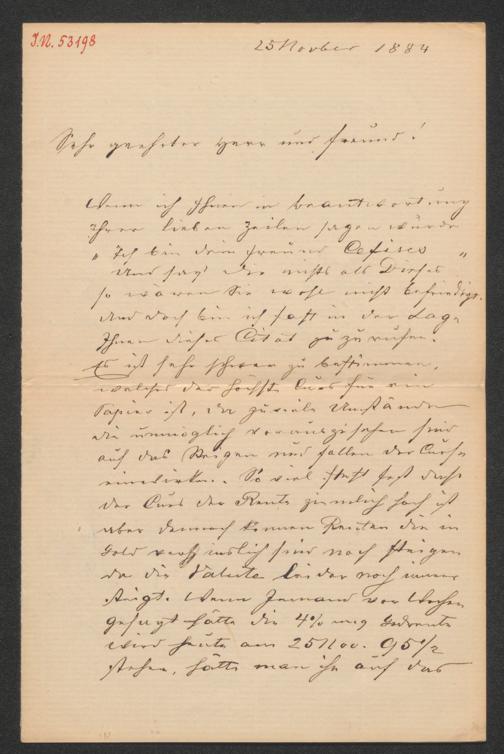 I.N. 53198
25 Novber 1884
Sehr geehrter Herr und Freund!
Wenn ich Ihnen in Beantwortung
Ihrer lieben Zeilen sagen würde
"Ich bin dein Freund Cefises"
Und sag' dir nichts als Dieses
so wären Sie wohl nicht befriedigt.
Und doch bin ich fast in der Lage
Ihnen dieses Citat zu zu rufen.
Es ist sehr schwer zu bestimmen,
welches der höchste Curs für ein
Papier ist, da zu viele Umstände
die unmöglich vorauszusehen sind
auf das Steigen und Fallen der Curse
einwirken. So viel steht fest dass
der Curs der Rente ziemlich hoch ist
aber dennoch können Renten die in
Gold verzinslich sind noch steigen
da die Valuta leider noch immer
steigt. Wenn Jemand vor Wochen
gesagt hätte die 4% ung Goldrente
wird heute am 25 Nov. 95 1/2
stehen, hätte man ihn auf das